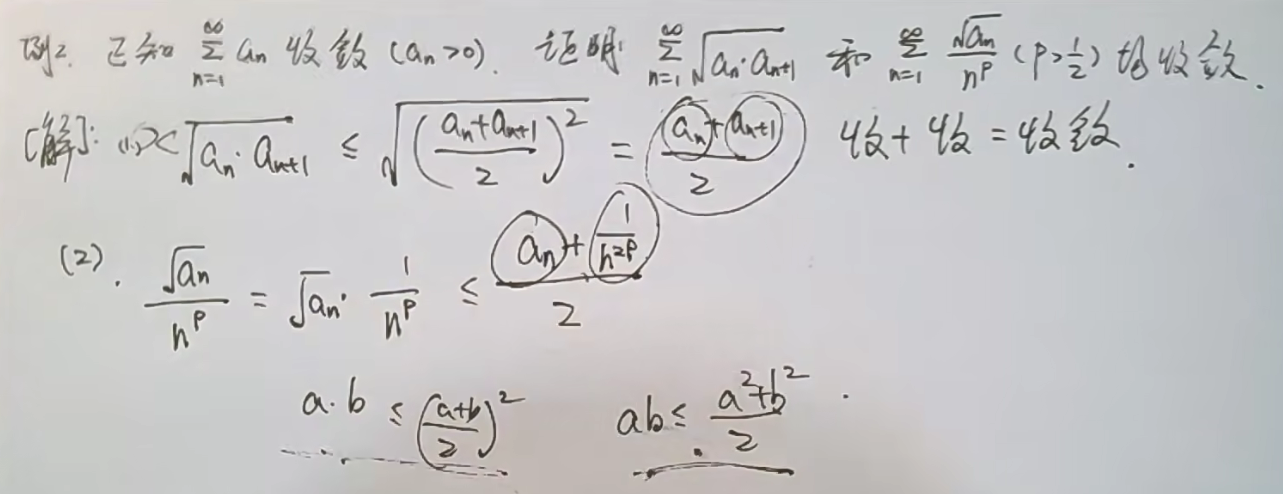 例2. 已知 $\sum_{n=1}^{\infty} a_n$ 收敛 ($a_n>0$). 证明: $\sum_{n=1}^{\infty} \sqrt{a_n \cdot a_{n+1}}$ 和 $\sum_{n=1}^{\infty} \frac{\sqrt{a_n}}{n^p}$ ($p>\frac{1}{2}$) 均收敛.
[解]: (1) $0< \sqrt{a_n \cdot a_{n+1}} \le \sqrt{\left(\frac{a_n+a_{n+1}}{2}\right)^2} = \frac{a_n+a_{n+1}}{2}$ 收+收=收敛.
(2). $\frac{\sqrt{a_n}}{n^p} = \sqrt{a_n} \cdot \frac{1}{n^p} \le \frac{a_n+\frac{1}{n^{2p}}}{2}$
$a \cdot b \le \left(\frac{a+b}{2}\right)^2$ $ab \le \frac{a^2+b^2}{2}$.